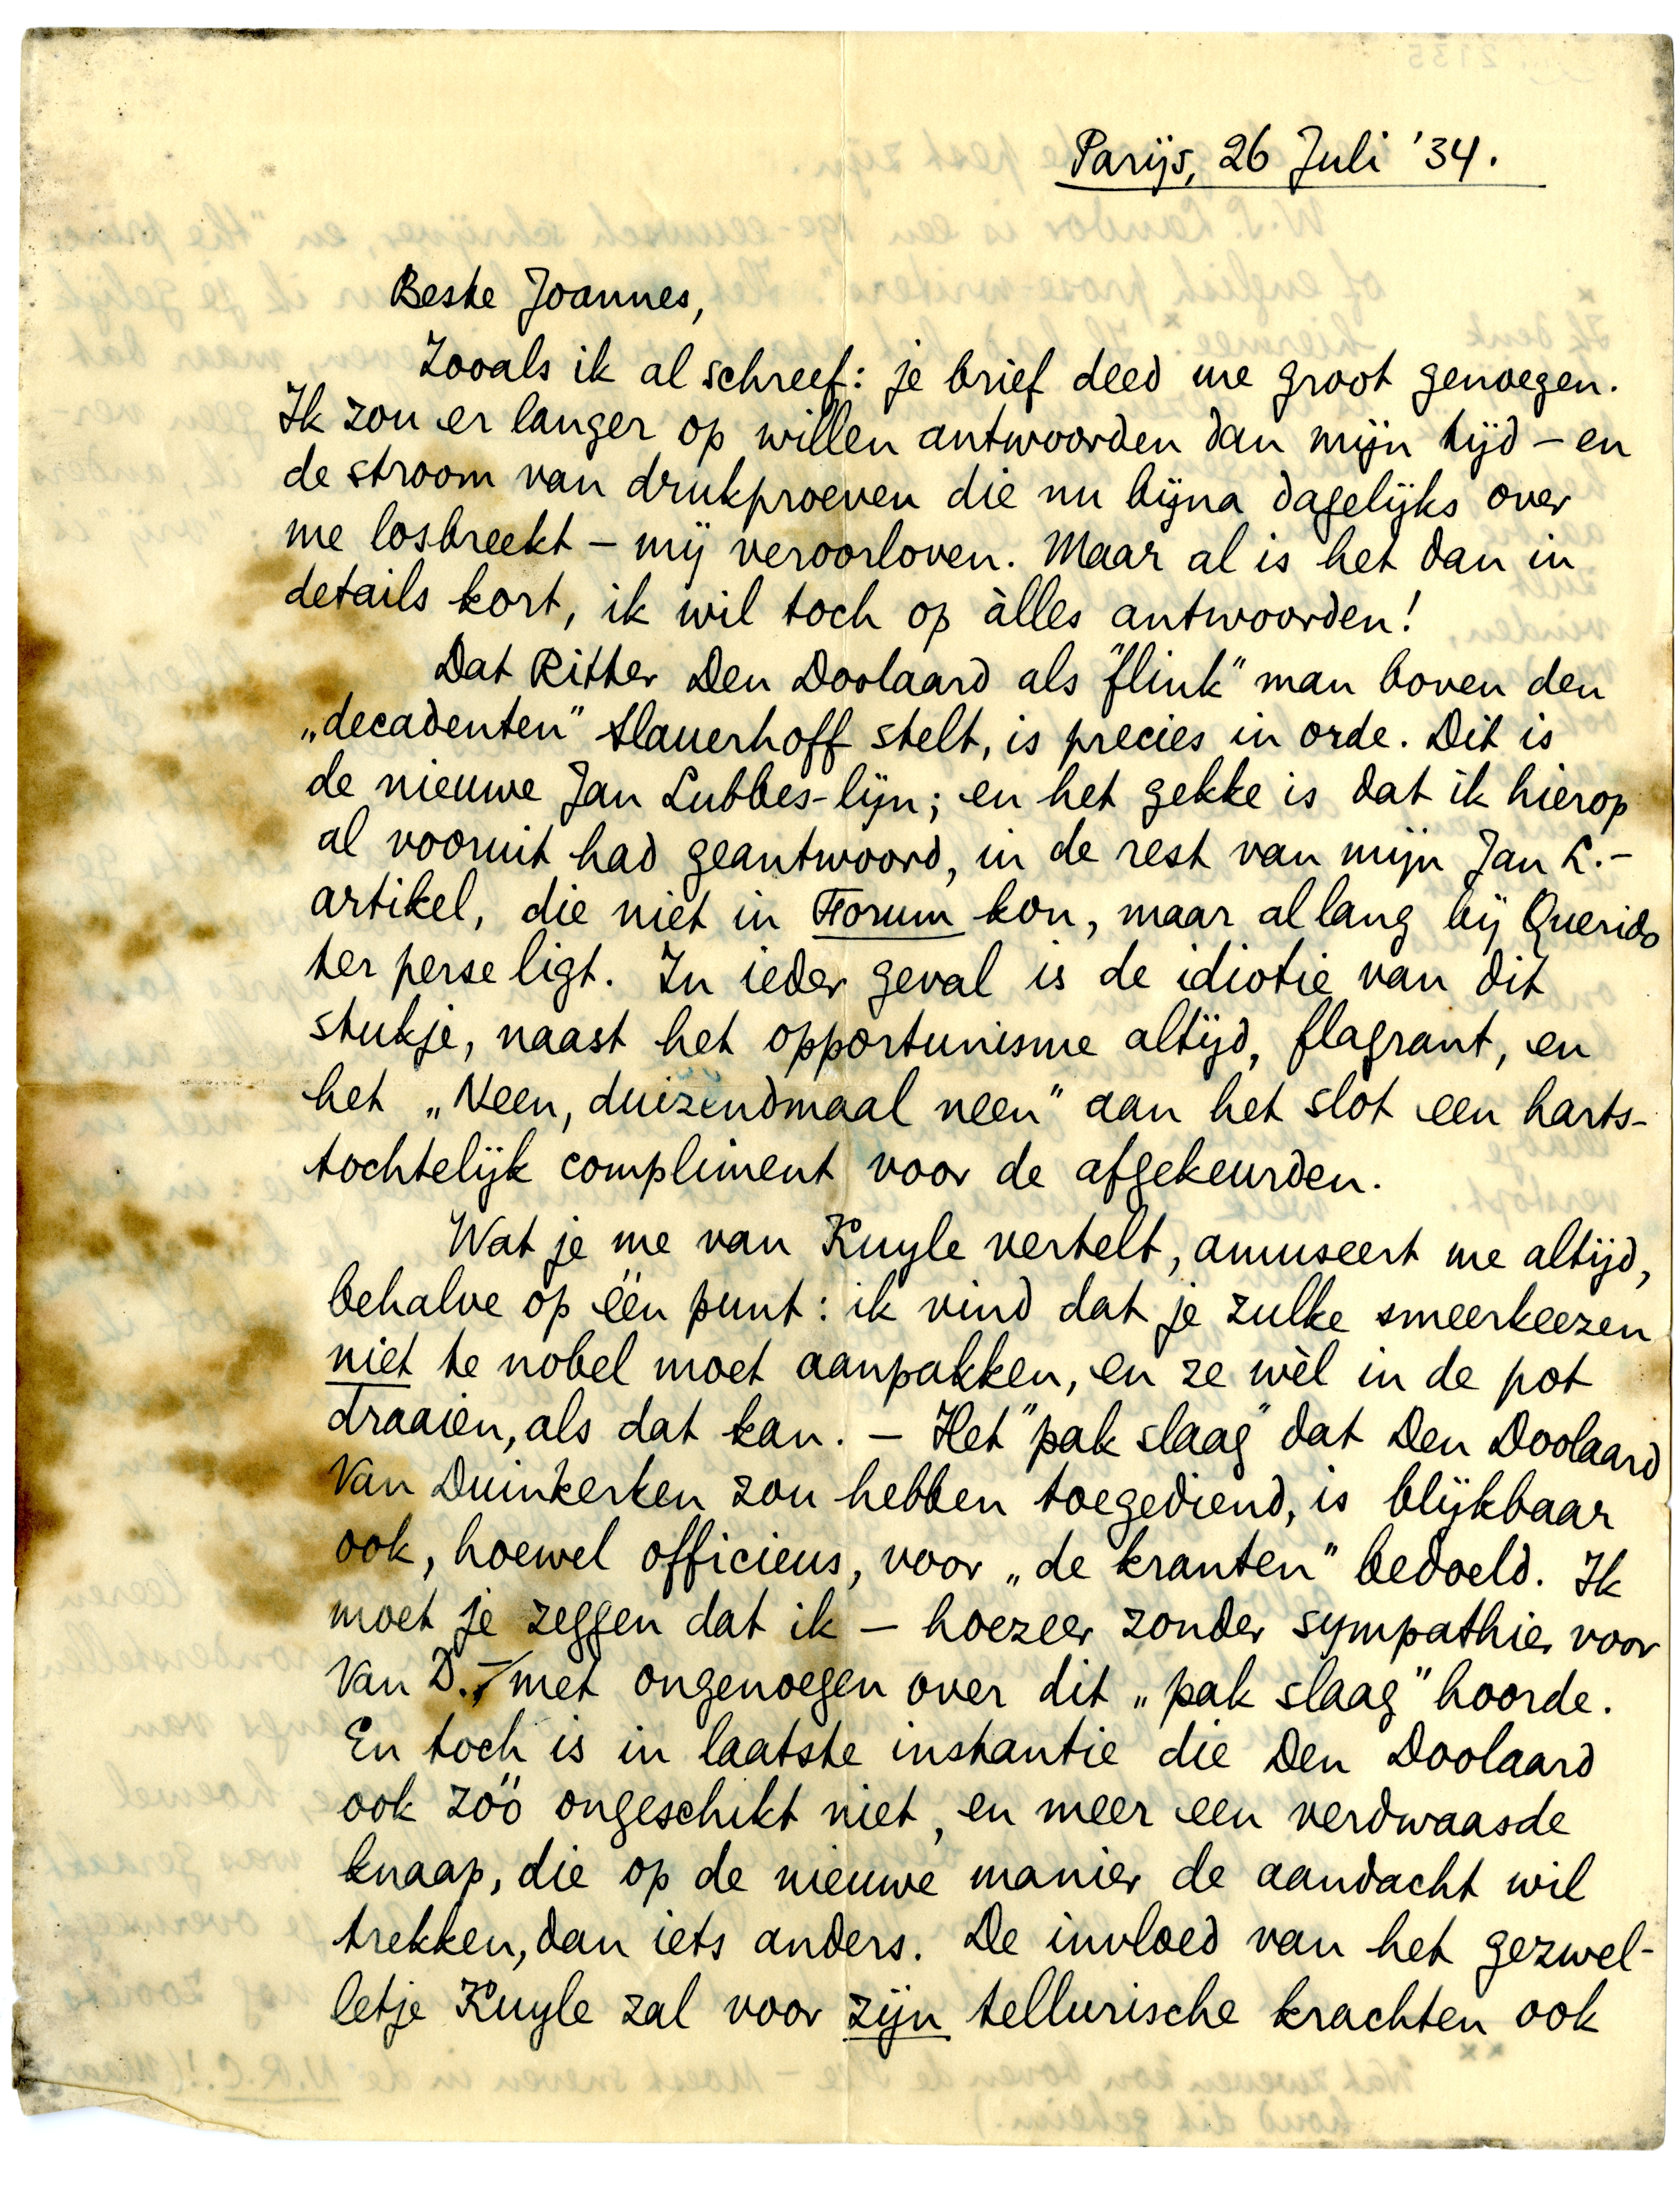 Parijs, 26 Juli '34.
Beste Joannes,
Zooals ik al schreef: je brief deed me groot genoegen.
Ik zou er langer op willen antwoorden dan mijn tijd – en
de stroom van drukproeven die nu bijna dagelijks over
me losbreekt – mij veroorloven. Maar al is het dan in
details kort, ik wil toch op àlles antwoorden!
Dat Ritter Den Doolaard als "flink" man boven den
„decadenten" Slauerhoff stelt, is precies in orde. Dit is
de nieuwe Jan Lubbes-lijn; en het gekke is dat ik hierop
al vooruit had geantwoord, in de rest van mijn Jan L.-
artikel, die niet in Forum kon, maar al lang bij Querido
ter perse ligt. In ieder geval is de idiotie van dit
stukje, naast het opportunisme altijd, flagrant, en
het „Neen, duizendmaal neen" aan het slot een harts-
tochtelijk compliment voor de afgekeurden.
Wat je me van Kuyle vertelt, amuseert me altijd,
behalve op één punt: ik vind dat je zulke smeerkeezen
niet te nobel moet aanpakken, en ze wèl in de pot
draaien, als dat kan. – Het "pak slaag" dat Den Doolaard
Van Duinkerken zou hebben toegediend, is blijkbaar
ook, hoewel officieus, voor „de kranten" bedoeld. Ik
moet je zeggen dat ik – hoezeer zonder sympathie voor
Van D. – met ongenoegen over dit „pak slaag" hoorde.
En toch is in laatste instantie die Den Doolaard
ook zóó ongeschikt niet, en meer een verdwaasde
knaap, die op de nieuwe manier de aandacht wil
trekken, dan iets anders. De invloed van het gezwel-
letje Kuyle zal voor zijn tellurische krachten ook